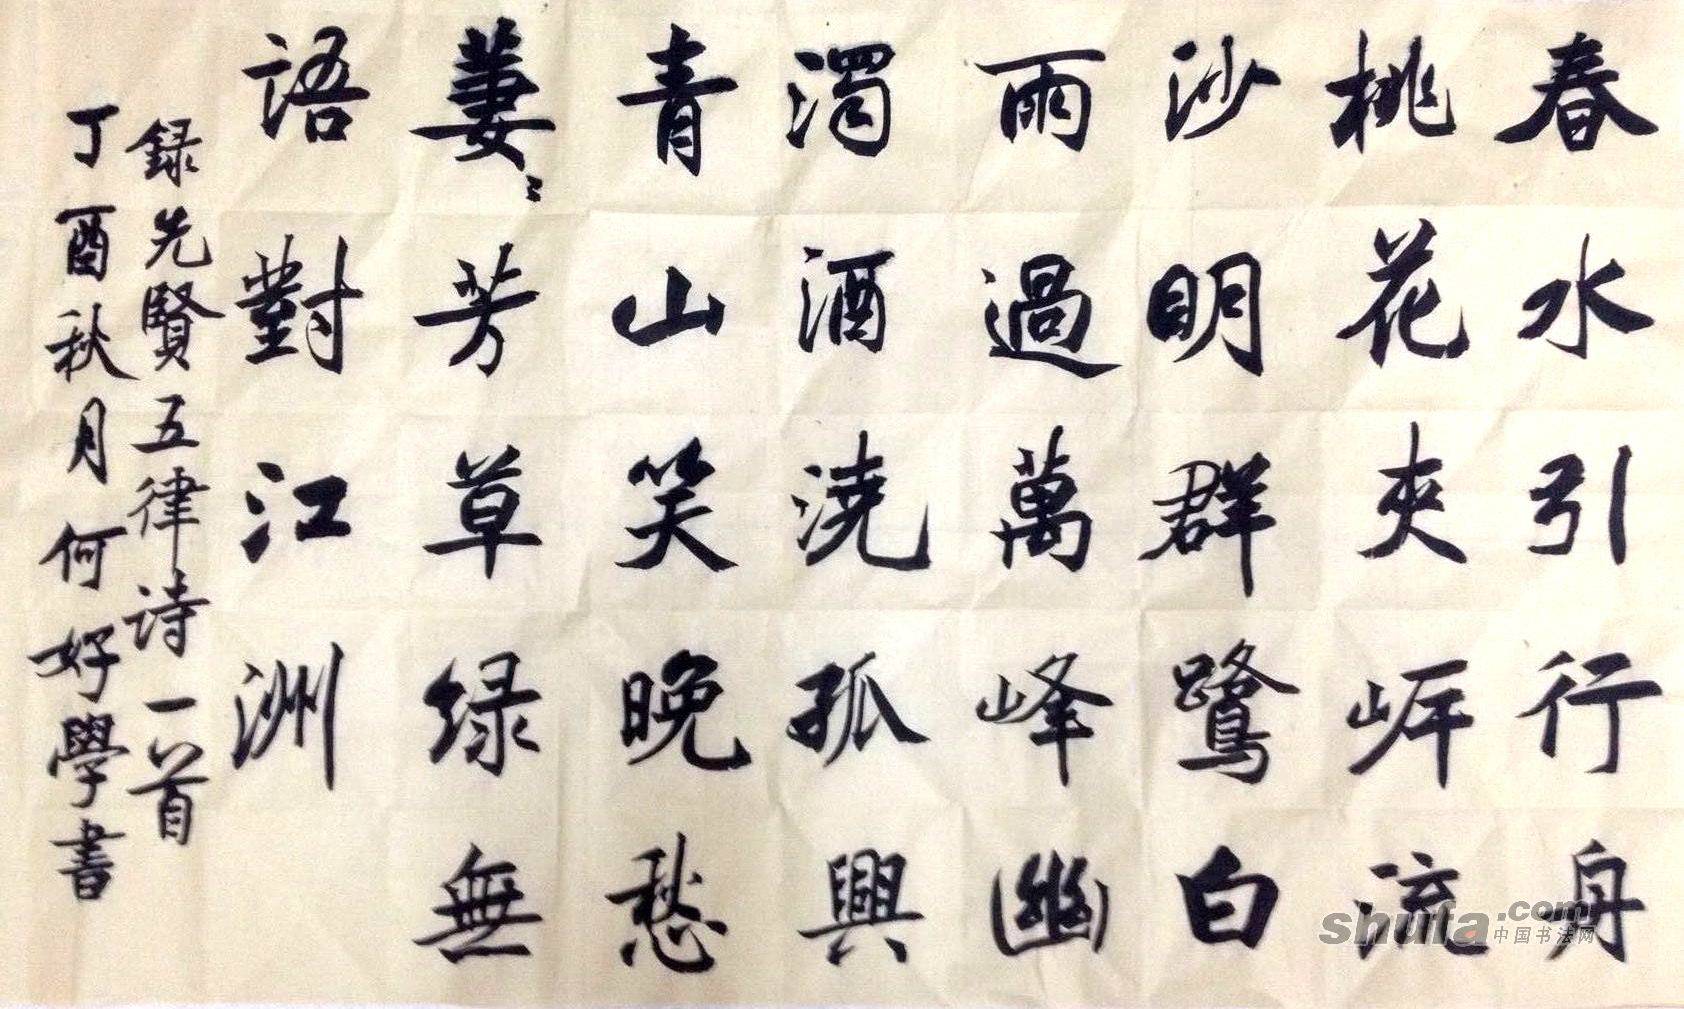 春水引行舟
桃花夾岸流
沙明群鷺白
雨過萬峰幽
濁酒澆孤興
青山笑晚愁
萋〻芳草绿無
語對江洲
録先賢五律诗一首
丁酉秋月何好學書
shufa.com
中国书法网